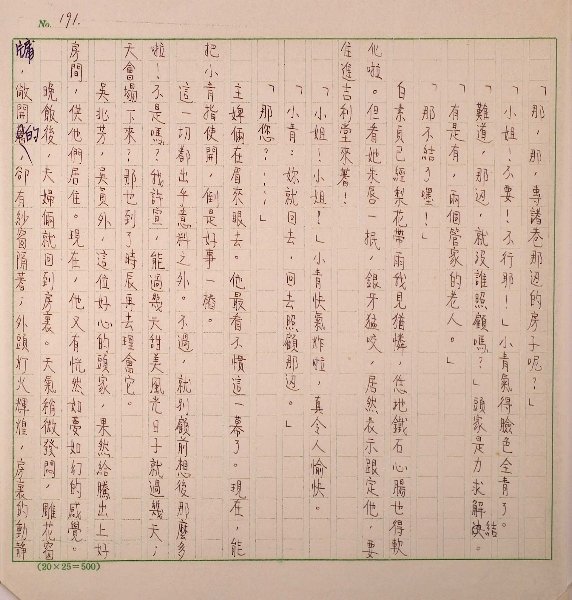 No. 191.
「那，那，專諸巷那边的房子呢？」
「小姐！不要！不行那！」小青氣得臉色全青了。
「難道，那迎，就沒誰照顧嗎？」頭家是力求解決。結
「有是有，兩個管家的老人。」
「那不結了嘿！」
白素貞已經梨花帶雨我見猶憐，恁地鐵石心腸也得軟
化啦。但看她朱唇一抿，銀牙猛咬，居然表示跟定他，要
住進吉利堂來着！
「小姐！小姐！」小青快氣炸啦，真令人愉快。
「小青：妳就回去，回去照顧那边。」
「那您？：：」
主婢倆在眉來眼去。他最看不慣這一幕了。現在，能
把小青指使開，倒是好事一樁。
這一切都出乎意料之外。不過，就別顧前想後那麼多
啦！不是嗎？我許宣，能過幾天甜美風光日子就過幾天；
天會塌下來？那也到了時辰再去理會它。
吳兆芳，吳員外，這位好心的頭家，果然給騰出上好
房間，供他們居住。現在，他又有恍然如夢如幻的感覺。
晚飯後，夫婦倆就回到房裏。天氣稍微發悶，雕花窗
牖，敞開的，卻有紗窗隔著；外頭灯火輝煌，房裏的動靜
(20×25=500)